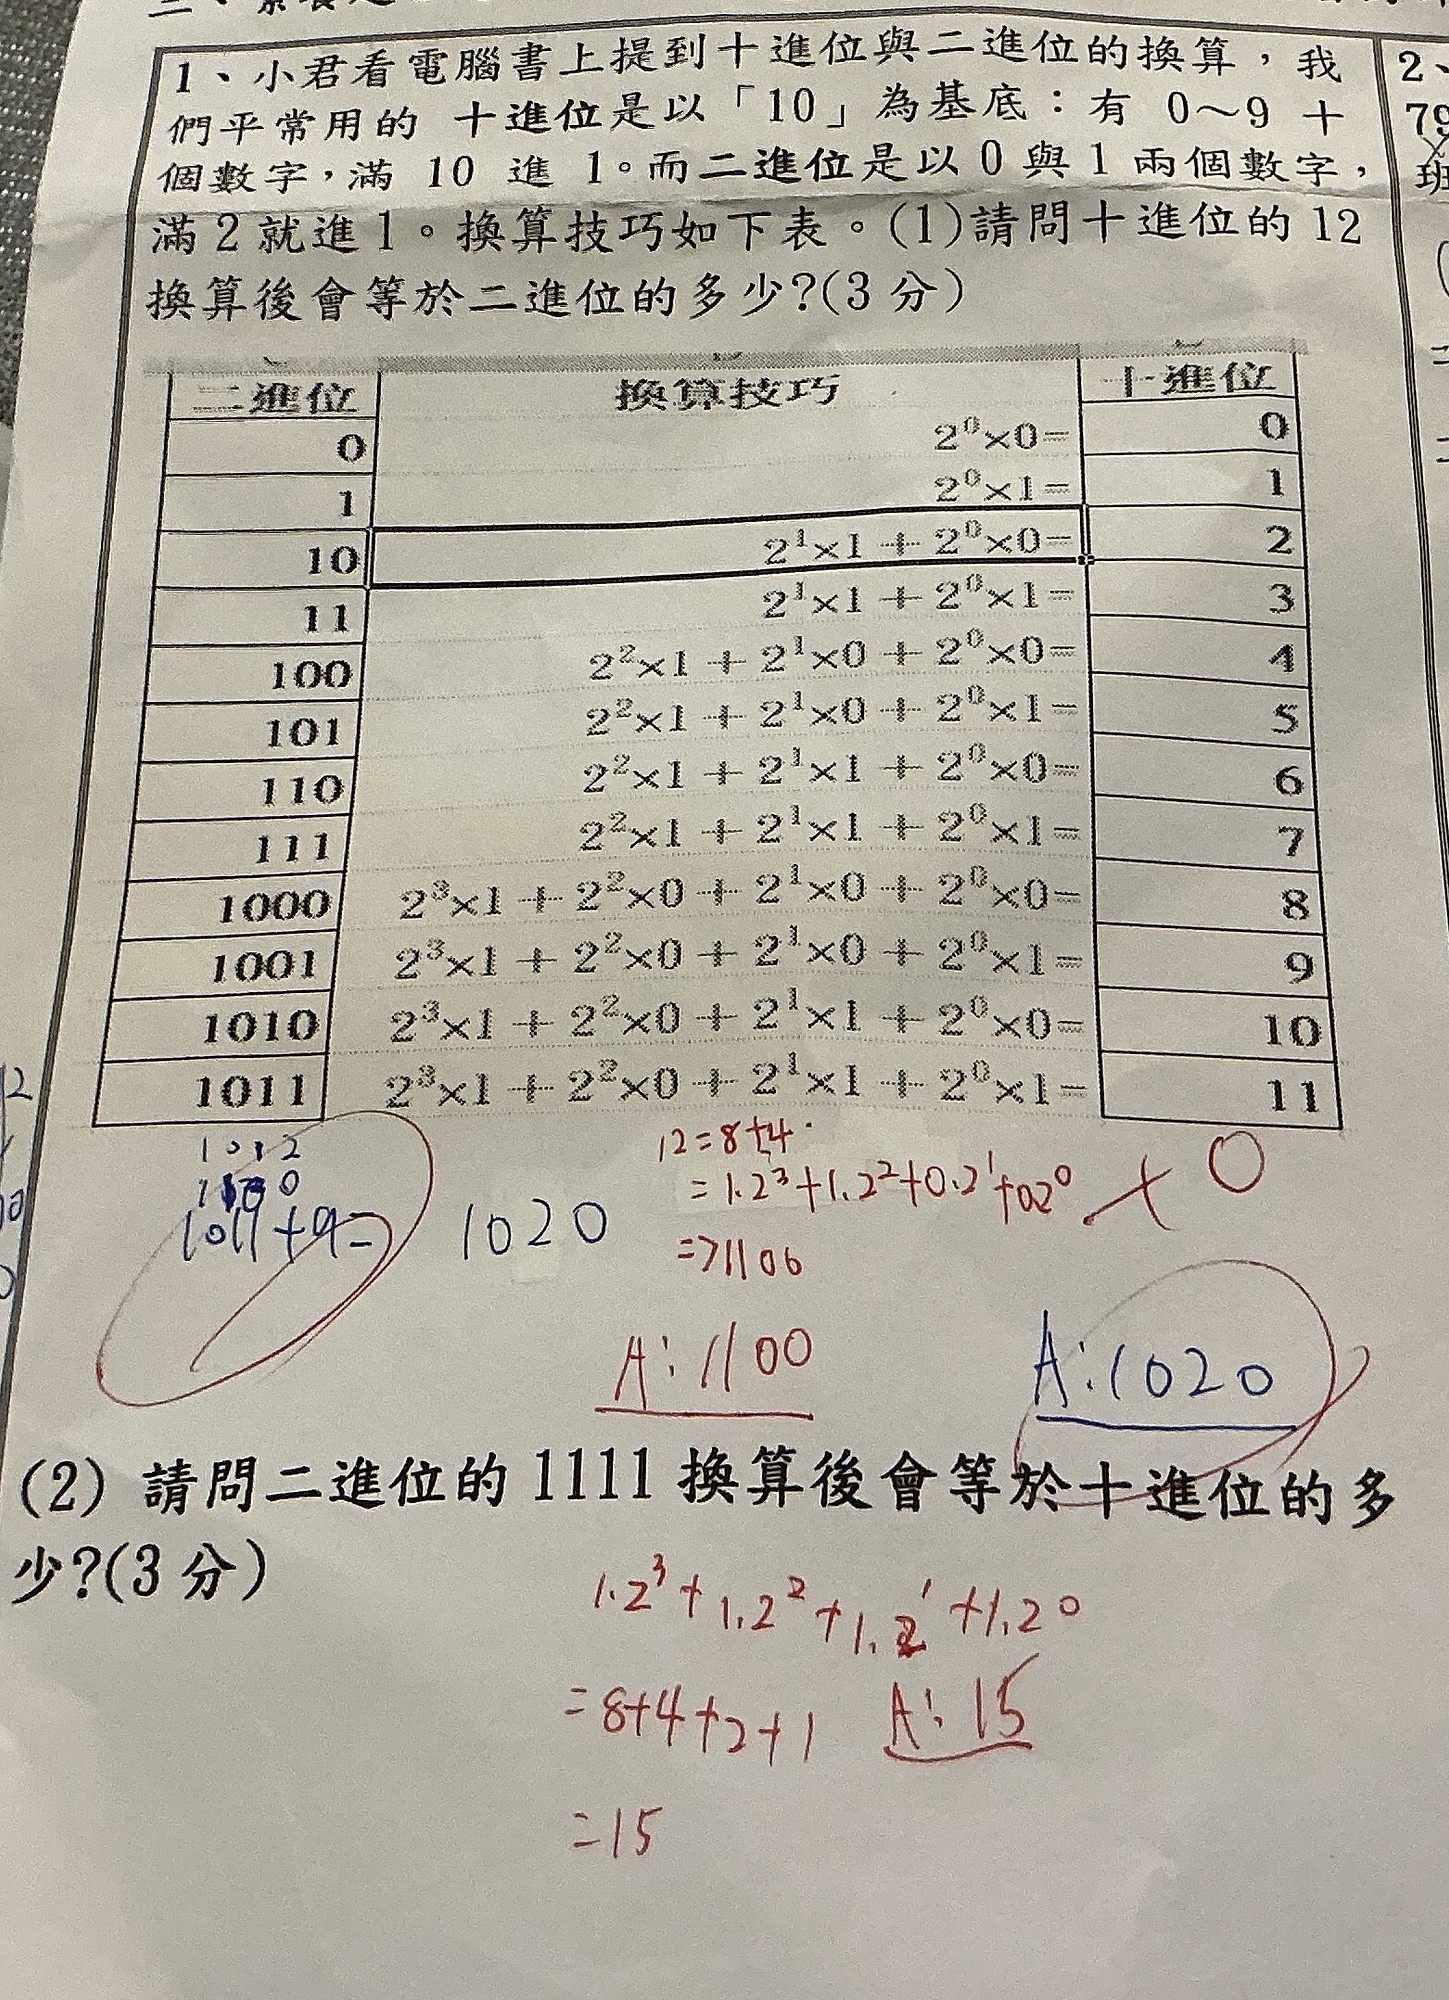 1、小君看電腦書上提到十進位與二進位的換算，我
們平常用的 十進位是以「10」為基底：有 0～9 十
個數字，滿 10 進 1。而二進位是以 0 與 1 兩個數字，
滿 2 就進 1。換算技巧如下表。(1)請問十進位的 12
換算後會等於二進位的多少?(3 分)
二進位 換算技巧 十進位
0 2⁰×0= 0
1 2⁰×1= 1
10 2¹×1 + 2⁰×0= 2
11 2¹×1 + 2⁰×1= 3
100 2²×1 + 2¹×0 + 2⁰×0= 4
101 2²×1 + 2¹×0 + 2⁰×1= 5
110 2²×1 + 2¹×1 + 2⁰×0= 6
111 2²×1 + 2¹×1 + 2⁰×1= 7
1000 2³×1 + 2²×0 + 2¹×0 + 2⁰×0= 8
1001 2³×1 + 2²×0 + 2¹×0 + 2⁰×1= 9
1010 2³×1 + 2²×0 + 2¹×1 + 2⁰×0= 10
1011 2³×1 + 2²×0 + 2¹×1 + 2⁰×1= 11
1012
1011+9=
1020
12=8+4
=1.2³+1.2²+0.2¹+0.2⁰ + 0
=>1100
A:1100
A:1020
(2) 請問二進位的 1111 換算後會等於十進位的多
少?(3 分)
1.2³+1.2²+1.2¹+1.2⁰
=8+4+2+1 A:15
=15
2、
79
班